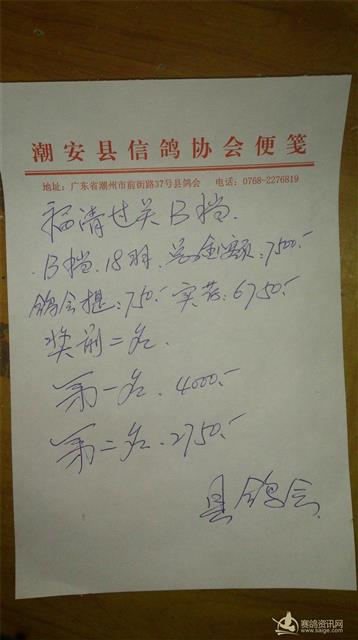 潮安县信鸽协会便笺
地址：广东省潮州市前街路37号县鸽会 电话：0768-2276819
福清过关B档.
B档.18羽.总金额:7500.-
鸽会提:750.- 实发:6750.-
奖前二名.
第一名.4000.-
第二名.2750.-
县鸽会
赛鸽资讯网
www.saige.com